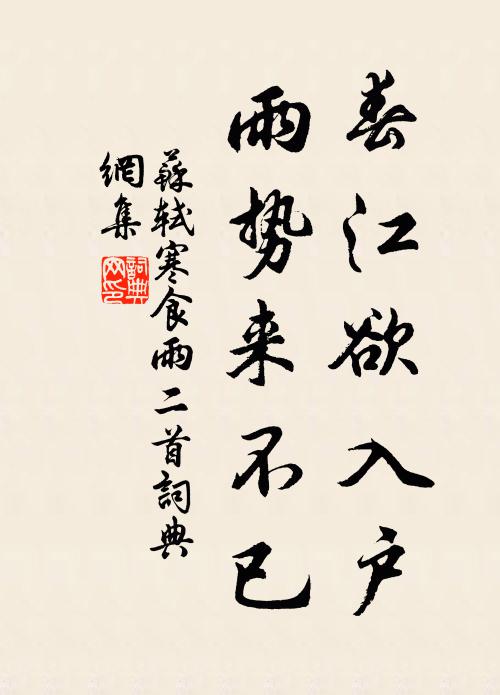 春江欲入户
雨势来不已
蘇軾寒食雨二首詞典
網集
詞典網印